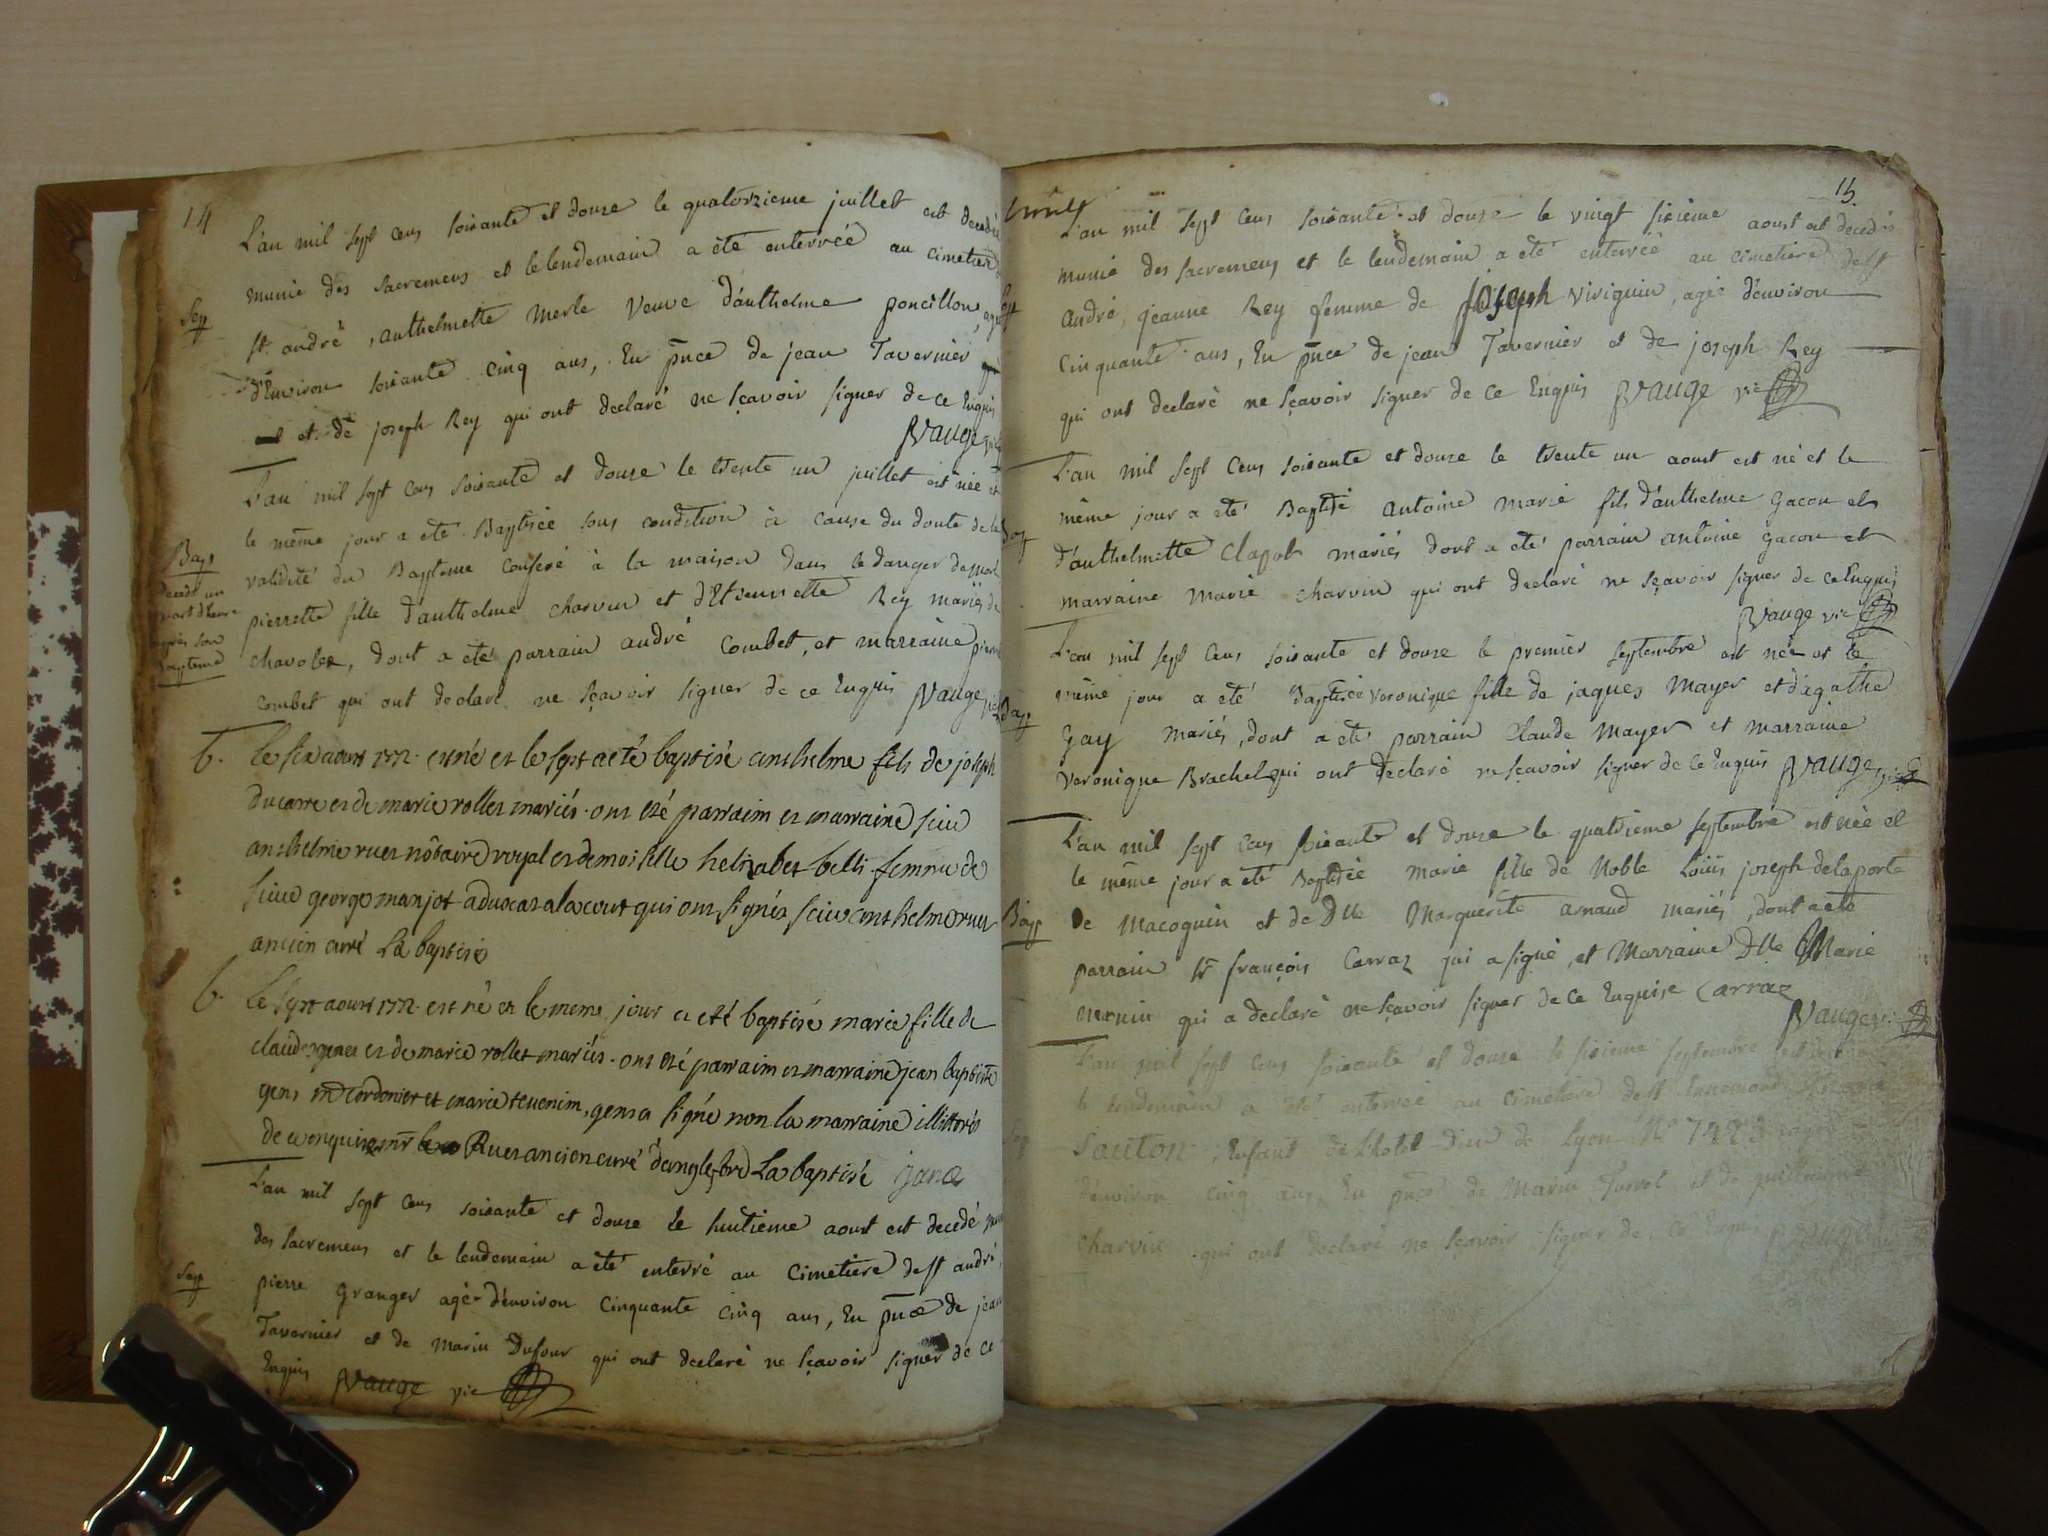 14
L'an mil sept cens soixante et douze le quatorzieme juillet est decedée
munie des sacremens et le lendemain a été enterrée au cimetiere
Sep
st. andré, anthelmette Merle Veuve d'anthelme poncillon, agée
d'Environ soixante cinq ans, En pnce de jean Tavernier
et de joseph Rey qui ont declaré ne sçavoir signer de ce Enquis
Vauge
L'an mil sept cens soixante et douze le trente un juillet est née et
le même jour a eté Baptisée sous condition à cause du doute de la
Bap
validité du Bapteme conferé à la maison dans le danger de mort
decedé un
quart d'heure
après son
bapteme
pierrette fille d'anthelme charvin et d'Etiennette Rey mariés de
chavolex, dont a eté parrain andré Combet, et marraine
combet qui ont declaré ne sçavoir signer de ce Enquis Vauge
b.
Le six aoust 1772. est né et le sept a eté baptisé anthelme fils de joseph
ducarre et de marie rollet mariés. ont eté parraim et marraine sieur
anthelme ruet nôtaire royal et demoiselle helizabet belli femme de
sieur george manjot advocat a la cour qui ont signés sieur anthelme ruet
ancien curé La baptisé
b.
Le sept aoust 1772. est né et le meme jour a eté baptisé marie fille de
claude genet et de marie rollet mariés. ont eté parraim et marraine jean baptiste
gens md Cordonier et marie tevenim, gens a signé non la marraine illitterés
de ce enquis mr Ruet ancien curé d'anglefort La baptisé
L'an mil sept cens soixante et douze le huitieme aoust est decedé
des sacremens et le lendemain a été enterré au Cimetiere de st andré,
Sep
pierre Granger agé d'environ Cinquante cinq ans, En pnce de jean
Tavernier et de Marin Dufour qui ont declaré ne sçavoir signer de ce
Enquis Vauge vic
15
L'an mil sept cens soixante et douze le vingt sixième aoust est decedée
munie des sacremens et le lendemain a eté enterrée au cimetiere de st
andré, jeanne Rey femme de joseph Viviguin, agée d'environ
Cinquante ans, En pnce de jean Tavernier et de joseph Rey
qui ont declaré ne sçavoir signer de ce Enquis Vauge vic
L'an mil sept cens soixante et douze le trente un aoust est né et le
même jour a eté Baptisé antoine marie fils d'anthelme Gacon et
d'anthelmette Clapot mariés dont a eté parrain antoine gacon et
marraine Marie charvin qui ont declaré ne sçavoir signer de ce Enquis
Vauge vic
L'an mil sept cens soixante et douze le premier septembre est née et le
même jour a eté Baptisée veronique fille de jaques Mayer et d'agathe
Bap
Gay mariés, dont a eté parrain Claude Mayer et marraine
Veronique Brachet qui ont declaré ne sçavoir signer de ce Enquis Vauge
L'an mil sept cens soixante et douze le quatrieme septembre est née et
le même jour a eté Baptisée Marie fille de Noble Loüis joseph delaporte
Bap
de Macoguin et de Dlle Marguerite arnaud mariés, dont a eté
parrain sr françois Carraz qui a signé, et Marraine Dlle Marie
Monin qui a declaré ne sçavoir signer de ce Enquise Carraz
Vauge
L'an mil sept cens soixante et douze le sixieme septembre
le lendemain a eté enterrée au cimetiere de st
Sauton, Enfant de l'hotel Dieu de Lyon No
d'environ cinq ans, En pnce de Marin et de
charvin qui ont declaré ne sçavoir signer de ce Enquis Vauge